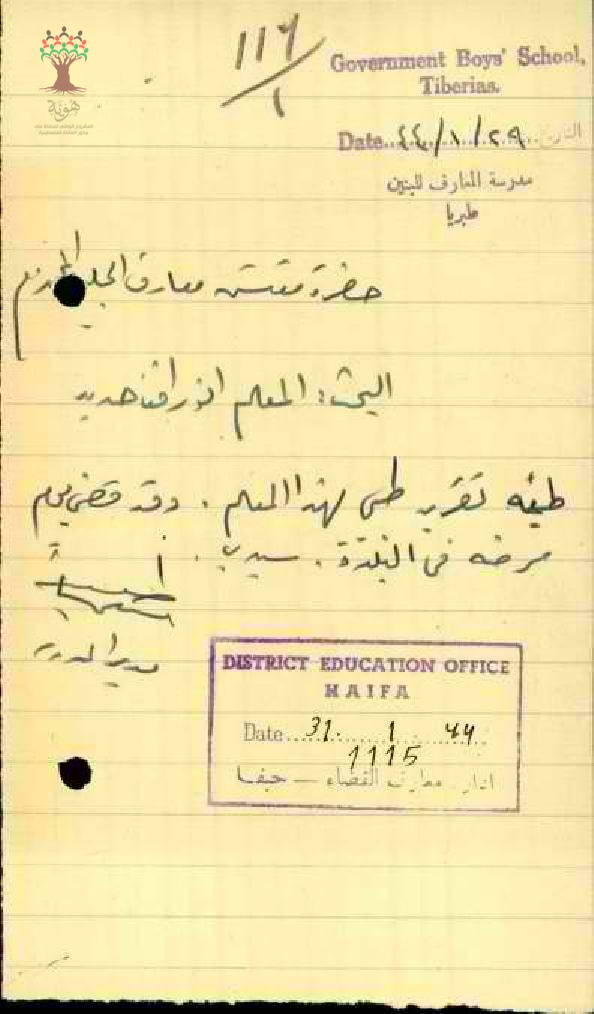 هوية
١١٦
١
Government Boys' School,
Tiberias.
Date ٤٤/١/٢٩ التاريخ
مدرسة المعارف للبنين
طبريا
حضرة مفتش معارف الجليل المحترم
البحث: المعلم انور حديد
طيه تقرير طبي لهذا المعلم . وقد قضى
مرضه في البلدة . سيدي .
مدير المدرسة
DISTRICT EDUCATION OFFICE
HAIFA
Date 31. 1. 44
1115
ادارة معارف القضاء — حيفا